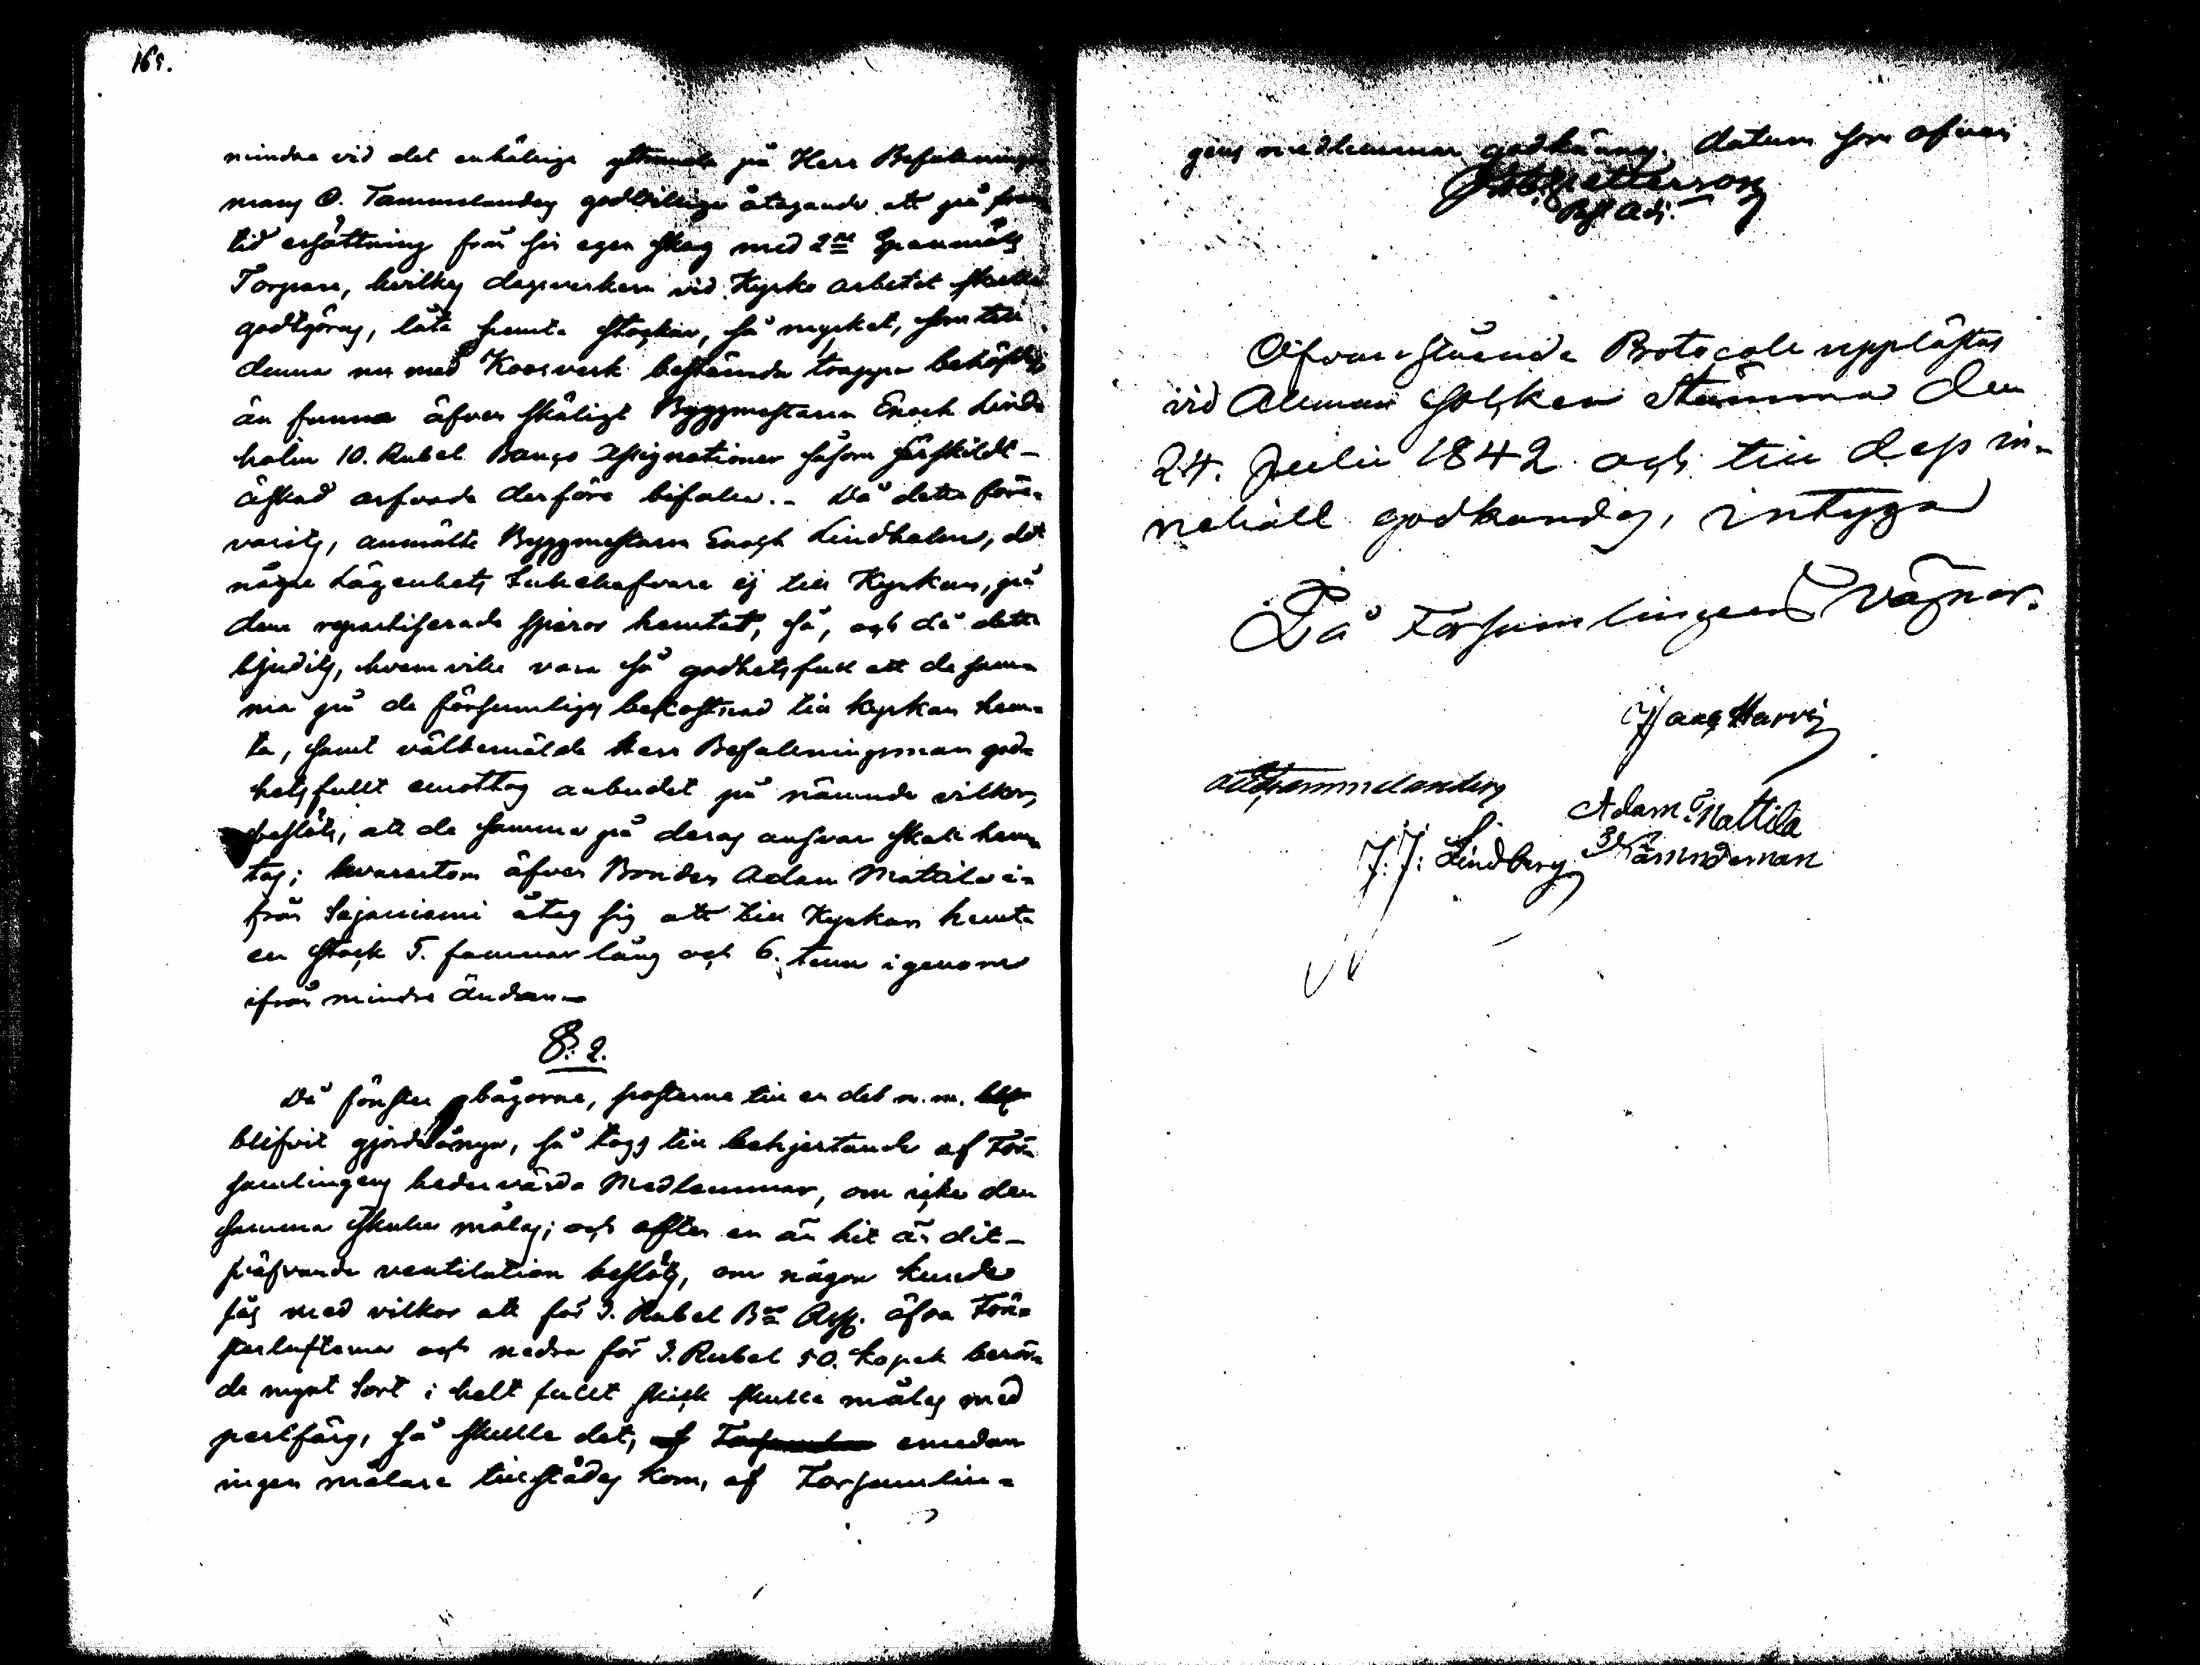 165.
mindre vid det enhälliga yttrande på Herr Befallnings
mans O. Tammelanders godtvilliga åtagande att på fram
tid ersättning från sin egen skog med 2ne Spanmåls
Torpare, hvilkas dagsverken vid Kyrko arbetet skulle
godtgöras, låta hemta stockar, så mycket, som till
denna nu med Korsverk bestämda trappa behöfdes
än funno äfven skäligt Byggmestaren Enoch Lind
holm 10. Rubel Banco Assignationer såsom särskildt
äskad arfvode derföre bifalla. - Då detta före-
varits, anmälte Byggmestaren Enoch Lindholm, det
några Lägenhets Innehafvare ej till Kyrkan, på
dem repartiserade spiror hemtat, så, och då detta
bjudits, hvem ville vara så godhetsfull att de sam
ma på de försumliges bekostnad till kyrkan hem-
ta, samt välbemälde Herr Befallningsman god-
hetsfullt emottog anbudet på nämnde vilkor,
beslöts, att de samma på deras ansvar skall hem-
tas; hvarutom äfven Bonden Adam Mattila i-
från Sajaniemi åtog sig att till Kyrkan hemta
en stock 5. famnar lång och 6. tum igenom
ifrån mindre ändan.
§. 2.
Då fönster bågorne, posterne till en del m.m.
blifvit gjorde ånyo, så togs till behjertande af För-
samlingens hedervärda Medlemmar, om icke den
samma skulle målas; och efter en än hit än dit-
sväfvande ventilation beslöts, om någon kunde
fås med vilkor att för 3. Rubel Bco Ass. öfra Fön-
sterlufterna och nedra för 3. Rubel 50. Kopek berör-
de mynt sort i helt fullt skick skulle målas med
perlfärg, så skulle det, af emedan
ingen målare tillstädes kom, af Församlin-
gens medlemmar godkännas. Datum som ofvan
Petterson
Past. Adj.
Ofvanstående Protocoll upplästes
vid Allmän Socken Stämma den
24. Julii 1842 och till dess in-
nehåll godkändes, intyga
På Församlingens vägnar.
Isaac Harvi
Tammelander
Adam Mattila
J. J. Lindberg
Nämndeman